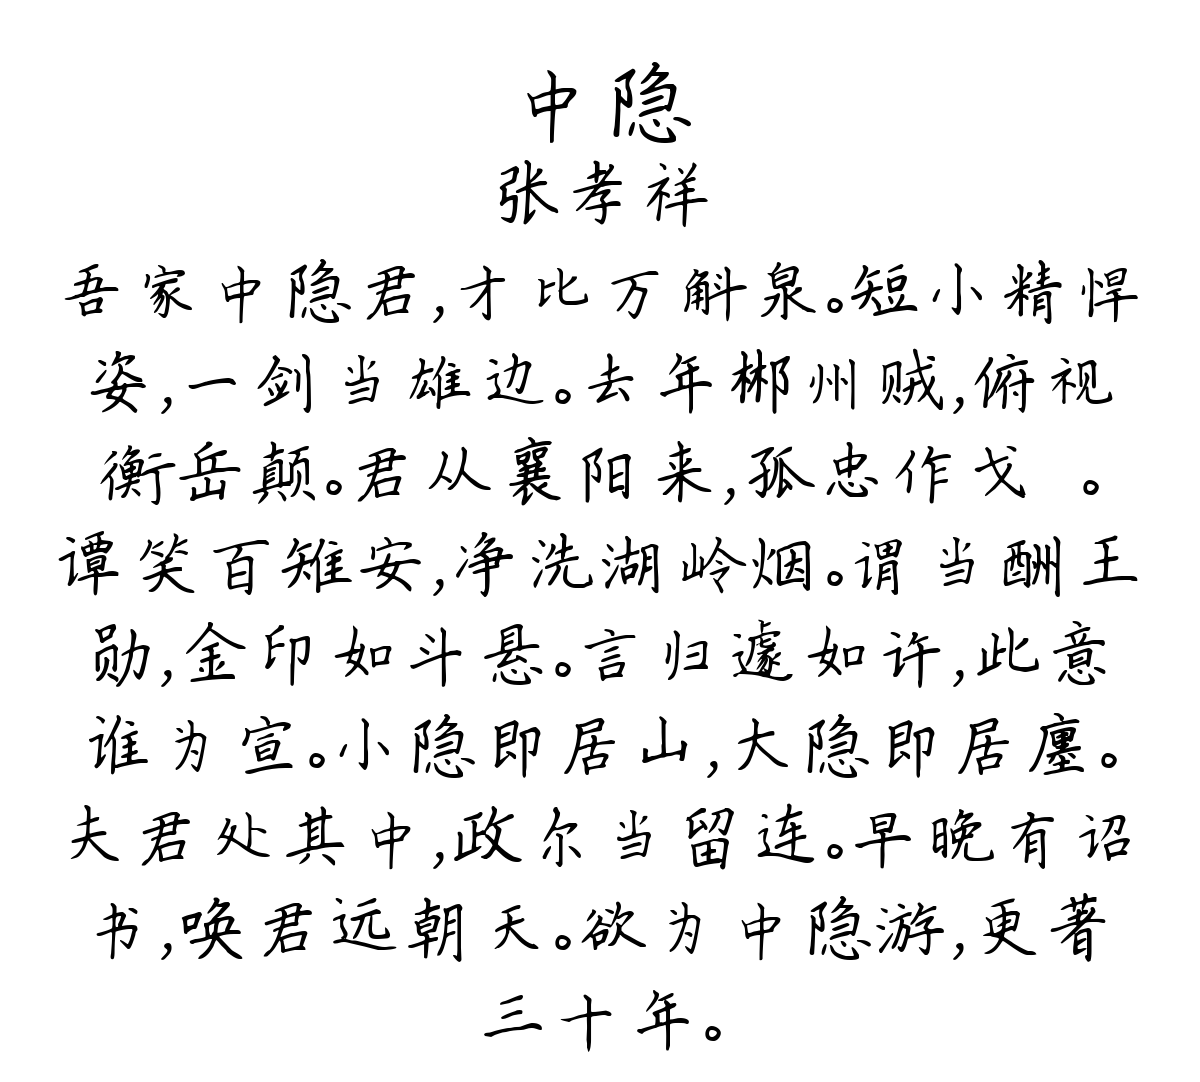 中隐
张孝祥
吾家中隐君,才比万斛泉。短小精悍
姿,一剑当雄边。去年郴州贼,俯视
衡岳颠。君从襄阳来,孤忠作戈 。
谭笑百雉安,净洗湖岭烟。谓当酬王
勋,金印如斗悬。言归遽如许,此意
谁为宣。小隐即居山,大隐即居廛。
夫君处其中,政尔当留连。早晚有诏
书,唤君远朝天。欲为中隐游,更著
三十年。